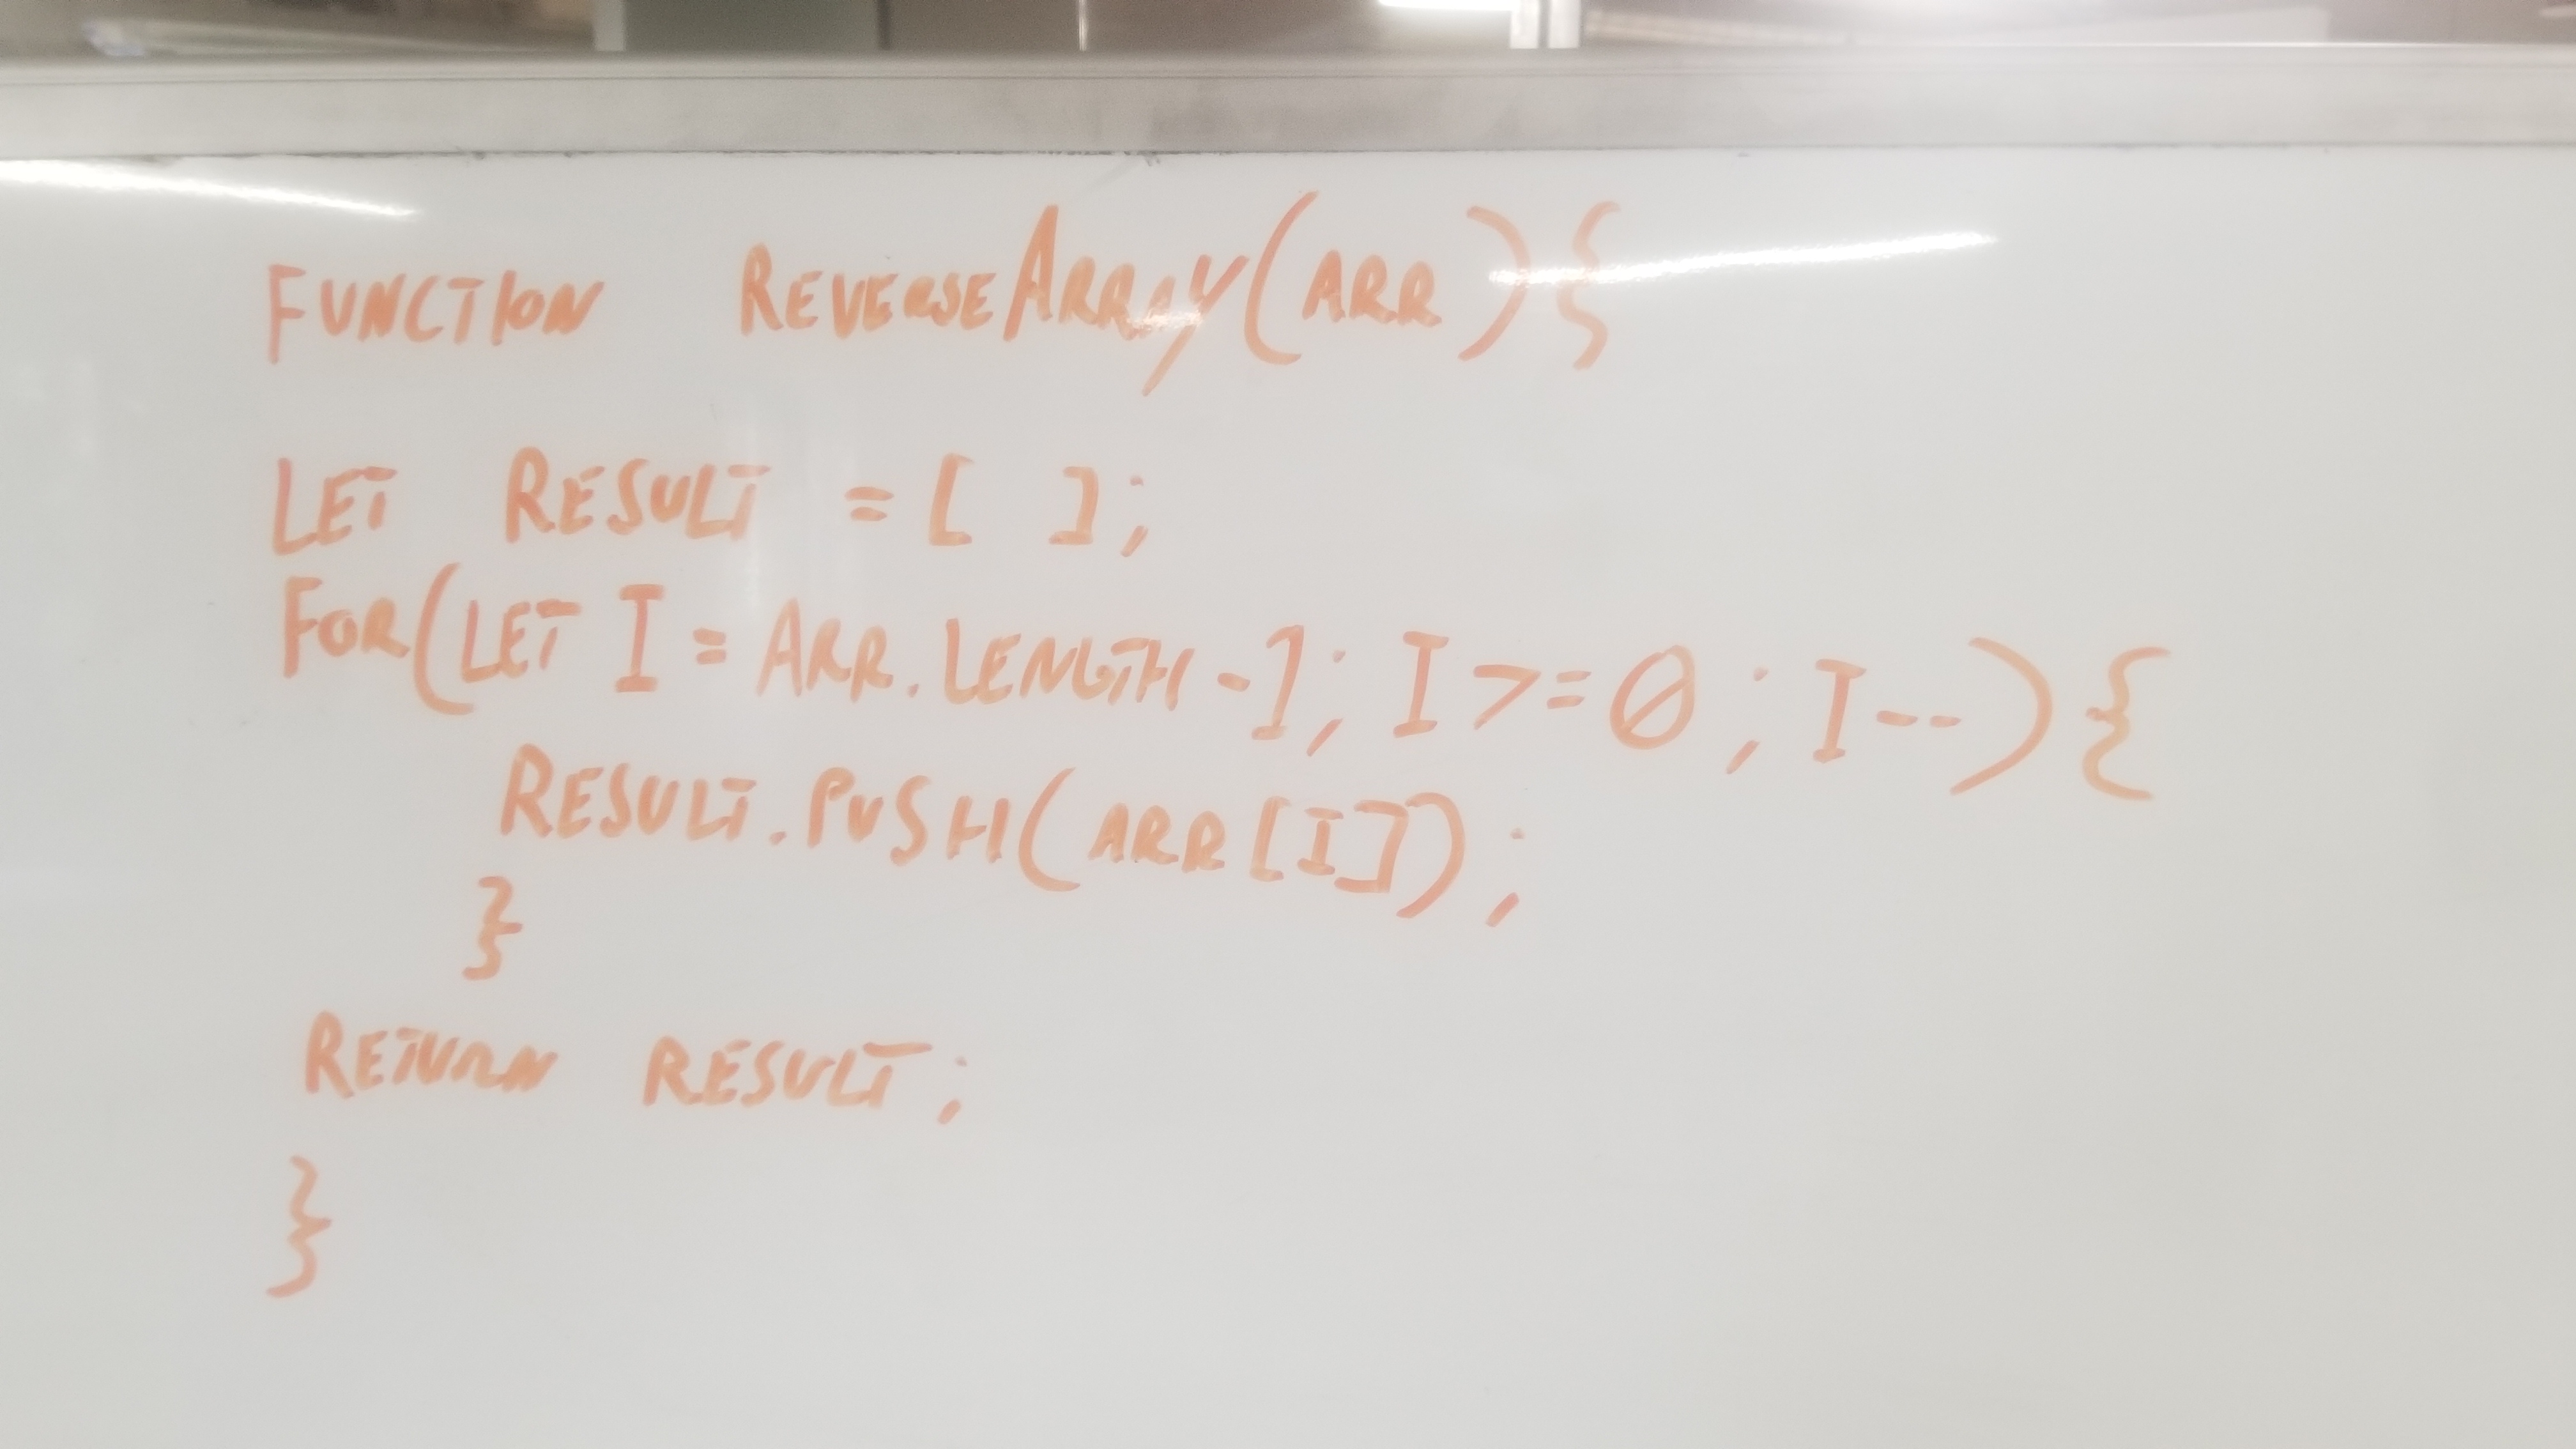 FUNCTION REVERSEARRAY(ARR){
LET RESULT = [ ];
FOR(LET I = ARR.LENGTH-1; I >= 0; I--){
RESULT.PUSH(ARR[I]);
}
RETURN RESULT;
}